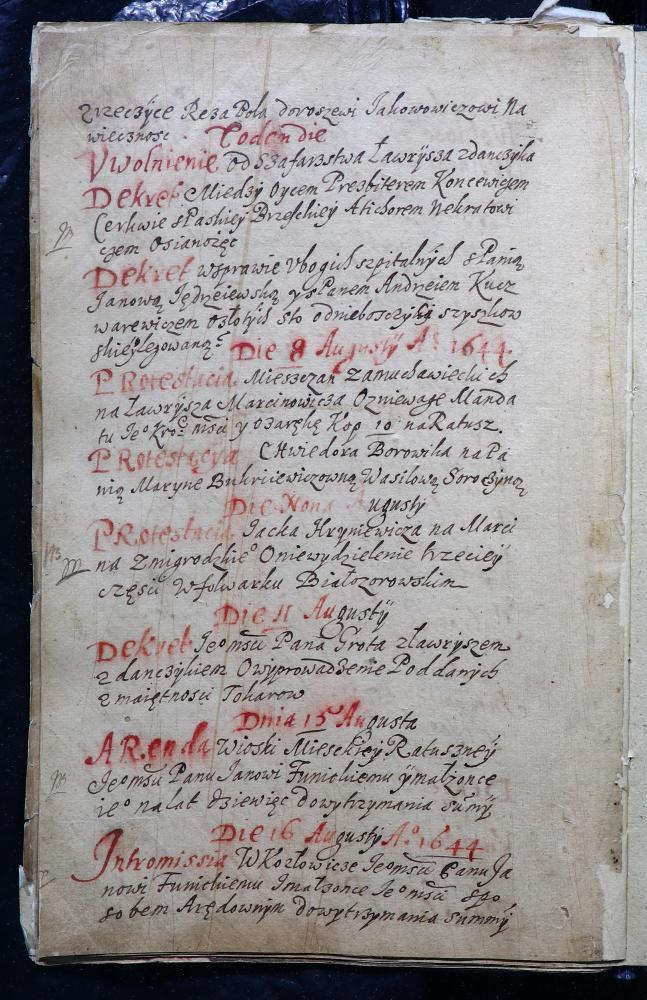 zrzeczyce Reza Pola doroszewi Jakowowiczowi Na
wiecznosc. Eodem die
Vwolnienie od Szafarstwa Ławrysza zdanczyka
Dekret Miedzy Oycem Prezbiterem Koncewiczem
Cerkwie sPaskiey Brzeskiey Atichorem Nekratowi
czem Osianożęc
Dekret wsprawie Vbogich szpitalnych sPanią
Janową Jędrzeiewską y sPanem Andrzeiem Kucz
warewiczem ozłotych sto odnieboszczyka szyszkow
skie° legowaną
Die 8 Augusty A° 1644.
PRotestacia Mieszczan Zamuchawieckich
na Ławrysza Marcinowicza Ozniewagę Manda
tu Je° Kro: Mści y oZarękę Kop 10 na Ratusz.
PRotestacya Chwiedora Borowika na Pa
nią Marynę Wasilową Soroczyną
Die Nona Augusty
PRotestacia Jacka Hryniewicza na Marci
na Zmigrodzkie° Oniewydzielenie trzeciey
części Wfolwarku Białozorowskim
Die 11 Augusty
Dekret Je°mści Pana Grota zławryszem
zdanczykiem Owyprowadzenie Poddanych
zmaiętności Tokarow
Dnia 15 Augusta
ARenda Wioski Mieskiey Ratuszney
Je°mści Panu Janowi Funickiemu ymałzonce
ie° na lat dziewięc dowytrzymania sumy
Die 16 Augusty A° 1644
Intromissia WKozłowicze Je°mści Panu Ja
nowi Funickiemu Imałzonce Je°mści spo
sobem Arędownym dowytrzymania summy